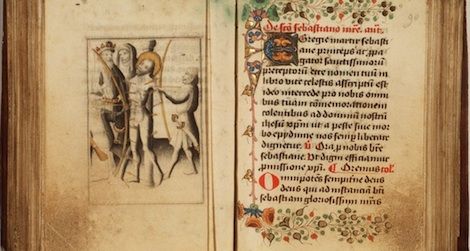 De scō sebastiano mre. ant.
Egregie martir sebasti
ane princeps ac ppa
gator sanctissimorū
preceptorū ecce nomen tuū in
libro vite celestis asscriptū est
ideo intercede pro nobis omni
bus tuā cōmemorationem
colentibus ad dominū nostrū
ihesū xpm ut a peste sine mor
bo epydimie nos semp liberare
dignetur. Ora p nobis bte
sebastiane. Vt digni efficiamur
pmissione xpi. Oremus col.
Omnipotēs sempitne deus
deus qui ad instanciam bti
sebastiani gloriosissimi mris